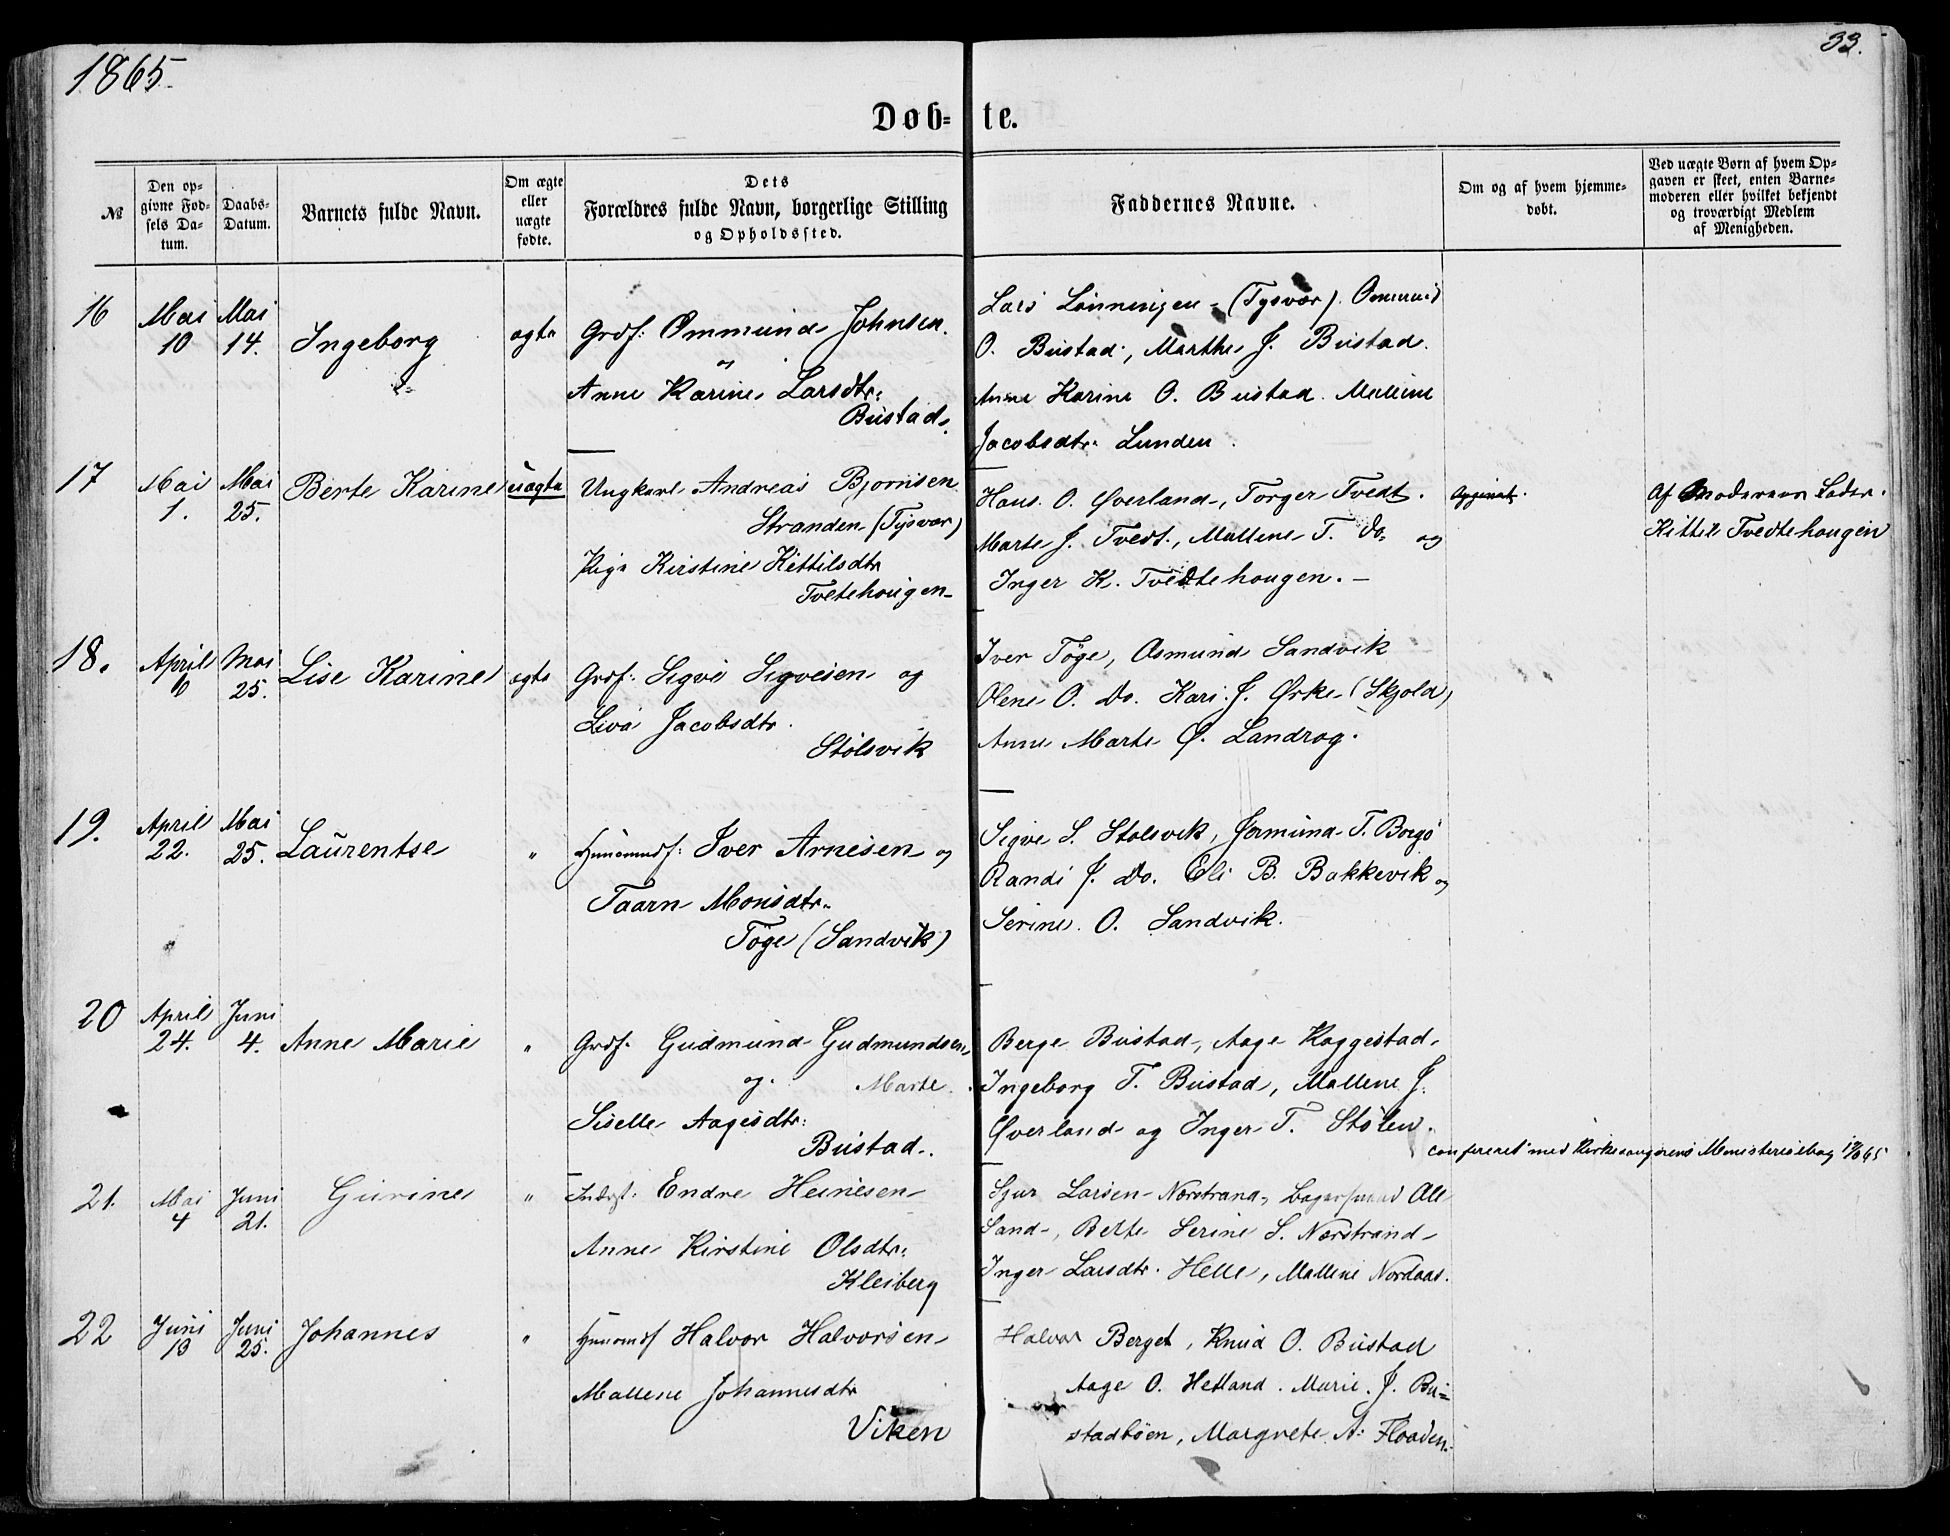 1865.
33.
Døbte.
№
Den opgivne Fødsels Datum.
Daabs-Datum.
Barnets fulde Navn.
Om ægte eller uægte fødte.
Dets Forældres fulde Navn, borgerlige Stilling og Opholdssted.
Faddernes Navne.
Om og af hvem hjemmedøbt.
Ved uægte Børn af hvem Opgaven er skeet, enten Barnemoderen eller hvilket bekjendt og troværdigt Medlem af Menigheden.
16
Mai 10
Mai 14.
Ingeborg
ægte
Grdf: Ommund Johnsen
og
Anne Karine Larsdtr.
Bustad.
Lars Lønningen (Tysvær). Ommund
O. Bustad, Marthe J. Bustad.
Anne Karine O. Bustad. Mallene
Jacobsdtr. Lunden.
17
Mai 1.
Mai 25.
Berte Karine
uægte
Ungkarl Andreas Bjørnsen
Stranden (Tysvær)
Pige Kirstine Kittilsdtr
Tvetehougen
Hans O. Øverland, Torger Tvedt.
Marte J. Tvedt, Mallene T. Do. og
Inger K. Tvedtehougen.
Af Moderens Fader.
Kittil Tvedtehougen
18.
April 6
Mai 25.
Lise Karine
ægte
Grdf: Sigve Sigvesen og
Liva Jacobsdtr.
Stølsvik
Iver Tøge, Asmund Sandvik
Olene O. Do. Kari J. Ørke (Skjold)
Anne Marte Ø. Landrog.
19.
April 22.
Mai 25.
Laurentse
"
Huusmdf: Iver Arnesen og
Taarn Monsdtr.
Tøge (Sandvik)
Sigve S. Stølsvik, Jermund T. Borgø
Randi J. Do. Eli B. Bakkevik og
Serine O. Sandvik.
20
April 24.
Juni 4.
Anne Marie
"
Grdf. Gudmund Gudmundsen
og Marte
Siselle Aagesdtr:
Bustad.
Berge Bustad, Aage Koggestad,
Ingeborg T. Bustad, Mallene J.
Øverland og Inger T. Stølen.
confereret med Kirkesangerens Ministerialbog
21.
Mai 4
Juni 21.
Gurine
"
Endre Heinesen
Anne Kirstine Olsdtr.
Kleiberg
Sjur Larsen Nærstrand,
Sand, Berte Serine S. Nærstrand
Inger Larsdtr. Helle, Mallene Nordaas.
22
Juni 13
Juni 25.
Johannes
"
Huusmdf Halvor Halvorsen
Mallene Johannesdtr
Viken
Halvor Berget, Knud O. Bustad
Aage O. Hetland. Marie J. Bu-
stadbøen, Margrete A. Floaden.